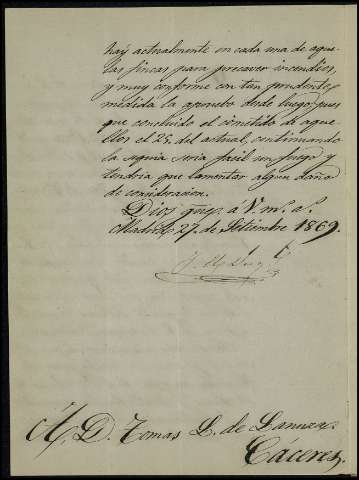 hay actualmente en cada una de aque-
llas fincas para precaver incendios,
y muy conforme con tan prudente
medida la apruebo desde luego, pues
que concluido el cometido de aque-
llos el 25, del actual, continuando
la sequia seria facil un fuego y
tendria que lamentar algun daño
de consideracion.
Dios gue. á V. m.s a.s
Madrid 27, de Setiembre 1869.
A, D. Tomas L. de Lanuza.
Cáceres.